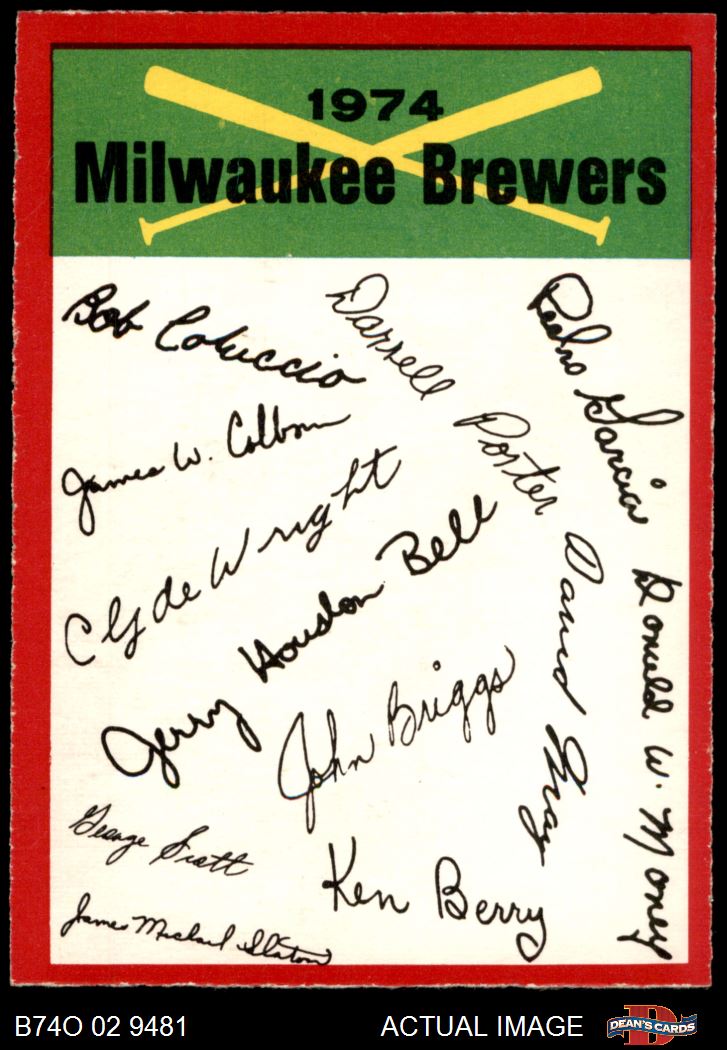 1974
Milwaukee Brewers
Bob Coluccio
Darrell Porter
Pedro Garcia
James W. Colborn
Clyde Wright
Jerry Houston Bell
David May
Donald W. Money
John Briggs
George Scott
Ken Berry
James Michael Slaton
B74O 02 9481
ACTUAL IMAGE
D
DEAN'S CARDS